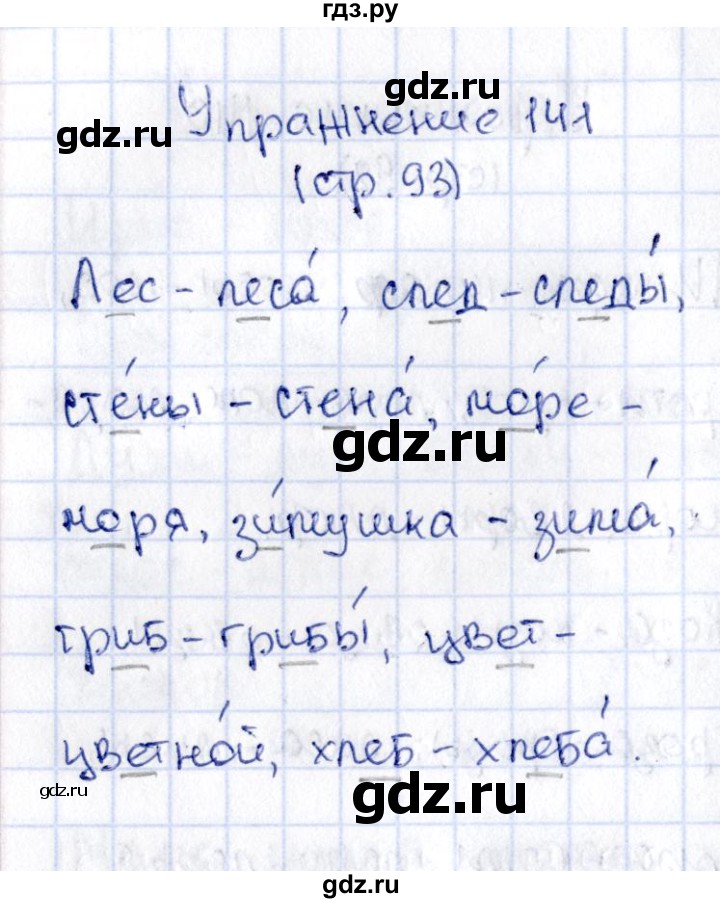 гдз.ру
gdz.ru
gdz.ru
Упражнение 141
(стр. 93)
Лес - леса́, след - следы́,
сте́ны - стена́, мо́ре -
gdz.ru
моря, зи́мушка - зима́,
гриб - грибы́, цвет -
gdz.ru
цветно́й, хлеб - хлеба́.
gdz.ru
gdz.ru
gdz.ru